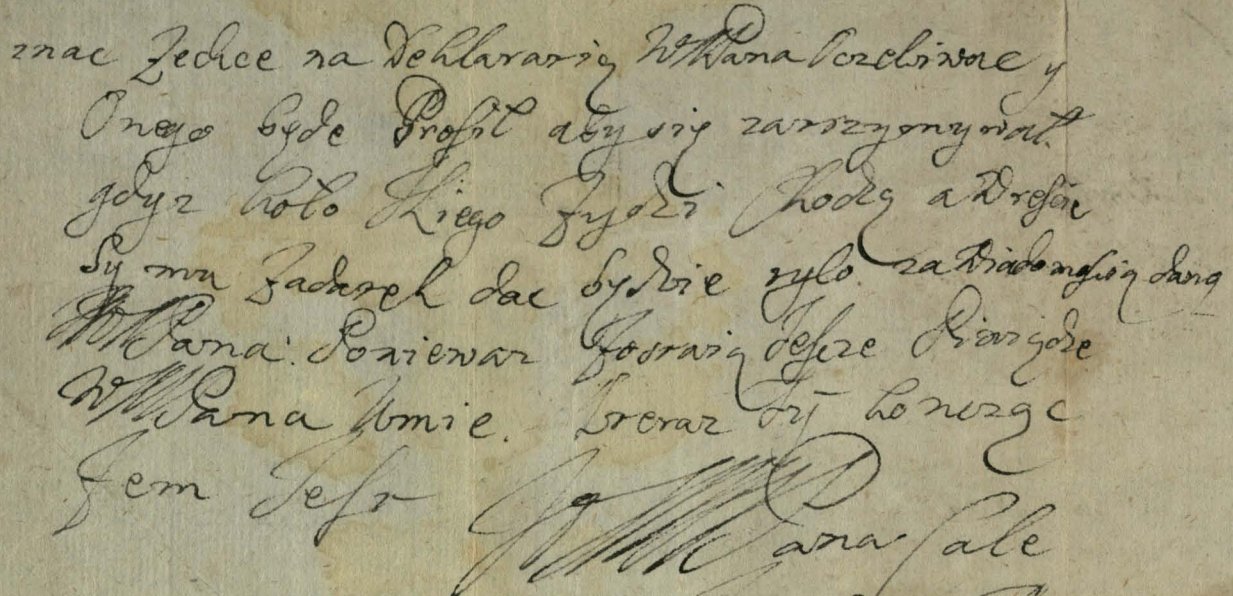 znac Zechce na Deklararią WMPana Oczekiwac y
Onego będe Prosil aby się zatrzymywał.
gdyz koło Niego Zydzi Chodzą a Wrescie
by mu Zadatek dac będzie tylo za Wiadomoscią daną
WMPana. Poniewaz Zostaią Jescze Pieniądze
WMPana Umie. Teraz Tÿ koncząc
Zem Jest WMPana Cale